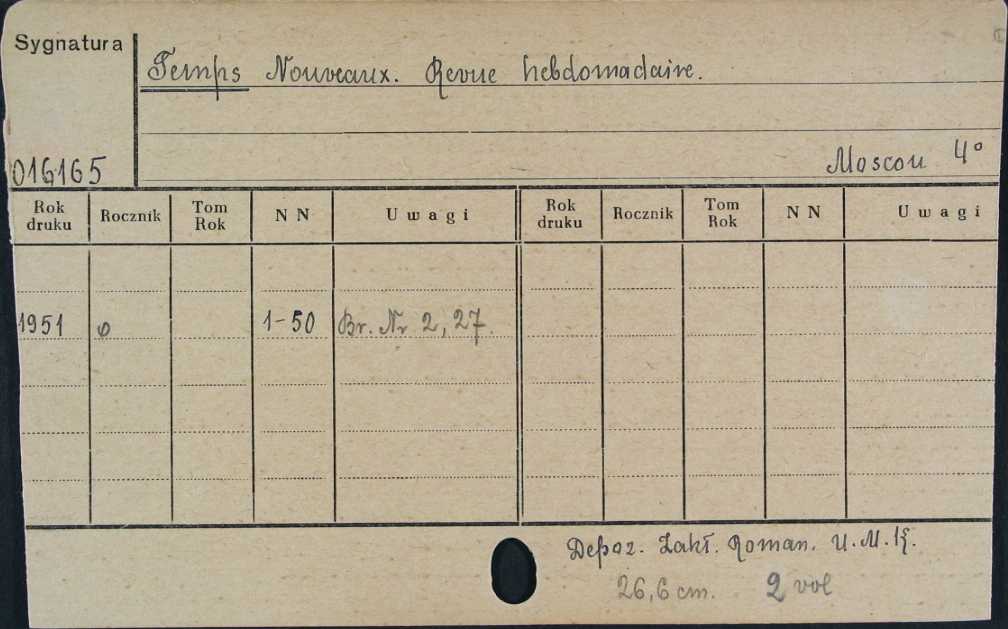 Sygnatura
Temps Nouveaux. Revue hebdomadaire.
016165
Moscou 4°
Rok druku Rocznik Tom Rok N N Uwagi Rok druku Rocznik Tom Rok N N Uwagi
1951 φ 1-50 Br. Nr 2, 27.
Depoz. Zakł. Roman. U.M.K.
26,6 cm. 2 vol